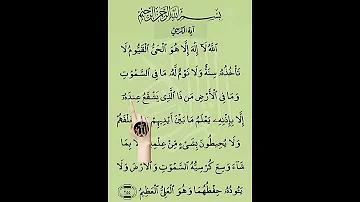 بِسْمِ اللهِ الرَّحْمٰنِ الرَّحِيْمِ
آيَةُ الْكُرْسِيِّ
اَللهُ لَآ اِلٰهَ اِلَّا هُوَ الْحَيُّ الْقَيُّوْمُ لَا
تَأْخُذُهٗ سِنَةٌ وَّلَا نَوْمٌ لَهٗ مَا فِي السَّمٰوٰتِ
وَمَا فِي الْاَرْضِ مَنْ ذَا الَّذِيْ يَشْفَعُ عِنْدَهٗ
اِلَّا بِاِذْنِهٖ يَعْلَمُ مَا بَيْنَ اَيْدِيْهِمْ خَلْفَهُمْ
وَلَا يُحِيْطُوْنَ بِشَيْءٍ مِّنْ عِلْمِهٖ بِمَا
شَآءَ وَسِعَ كُرْسِيُّهُ السَّمٰوٰتِ وَالْاَرْضَ وَلَا
يَئُوْدُهٗ حِفْظُهُمَا وَهُوَ الْعَلِيُّ الْعَظِيْمُ